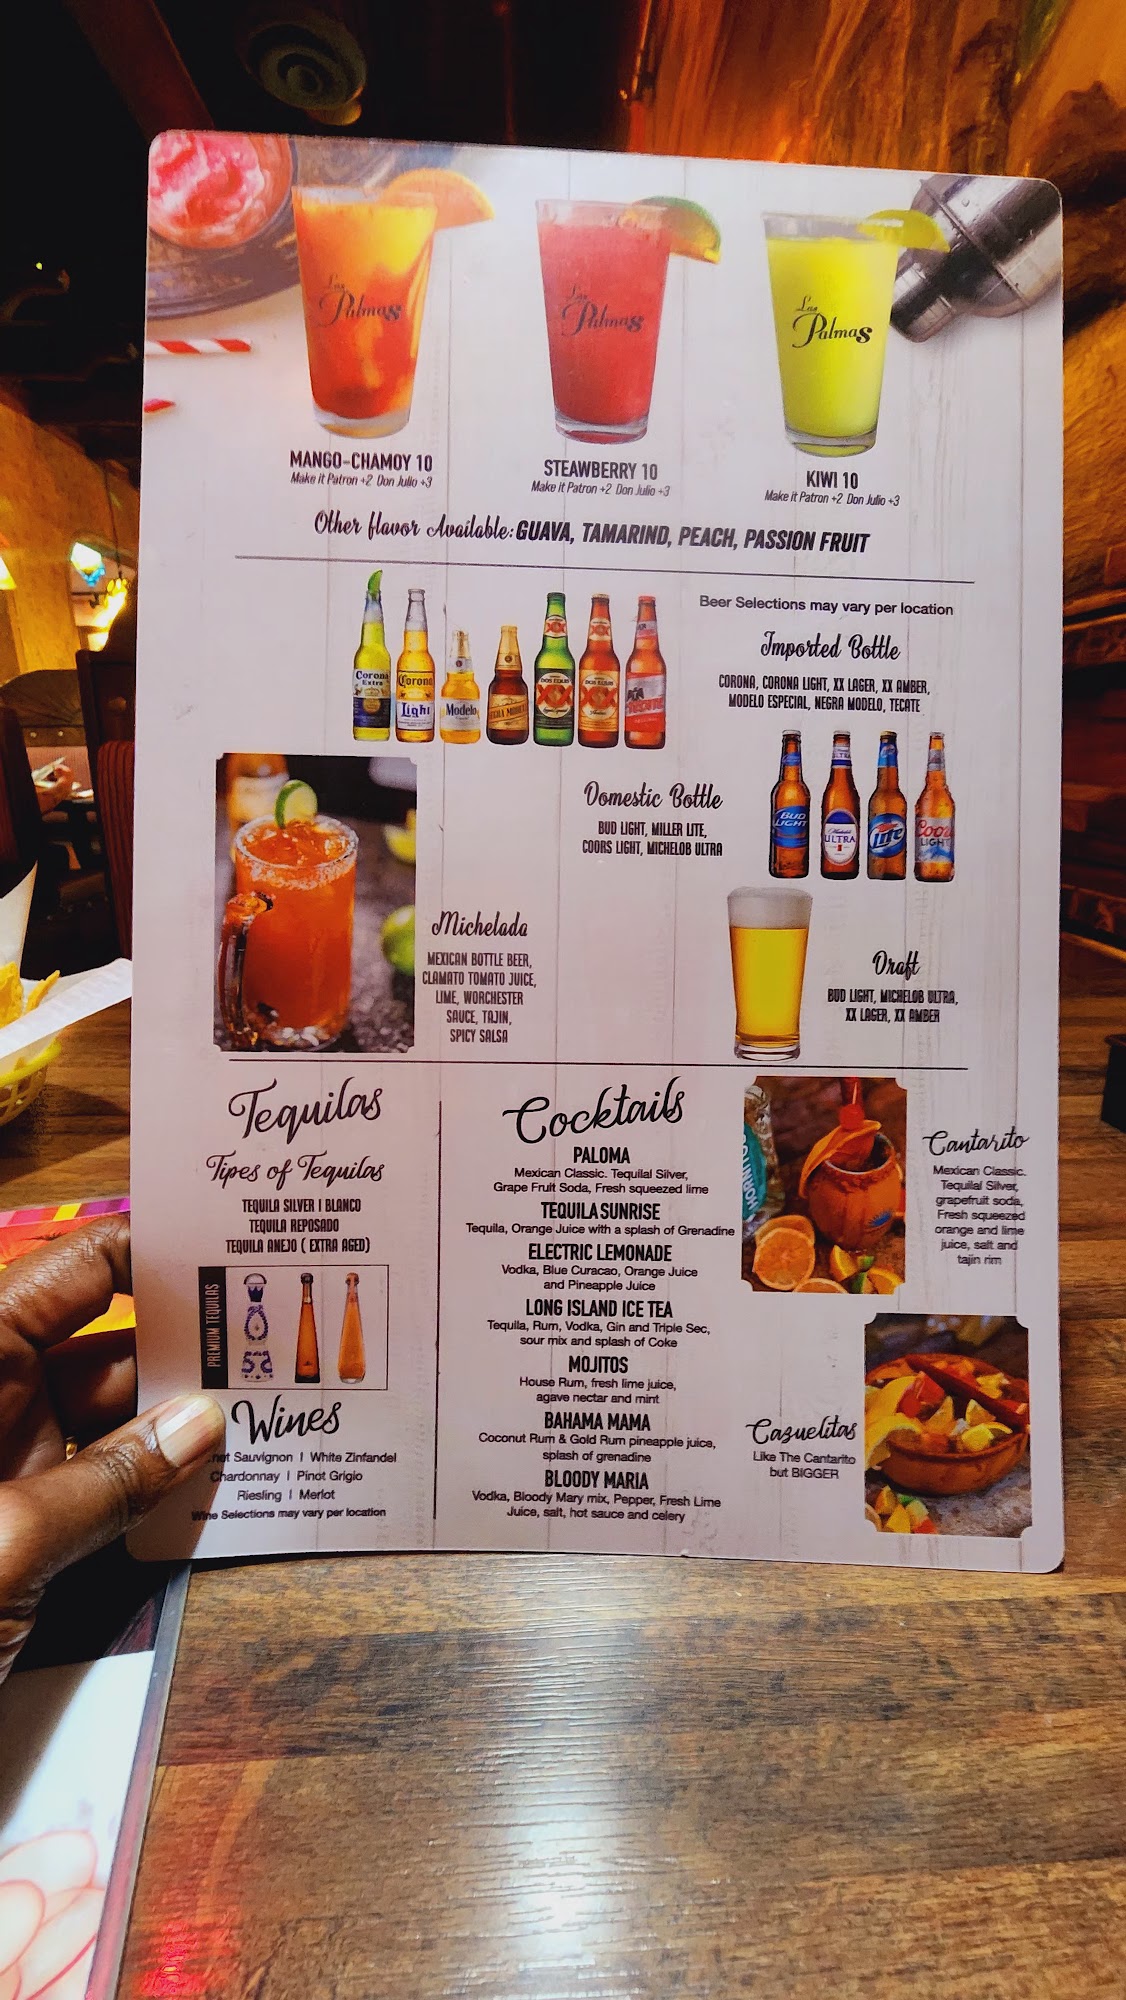 Las
Palmas
Las
Palmas
Las
Palmas
MANGO-CHAMOY 10
Make it Patron +2 Don Julio +3
STEAWBERRY 10
Make it Patron +2 Don Julio +3
KIWI 10
Make it Patron +2 Don Julio +3
Other flavor Available: GUAVA, TAMARIND, PEACH, PASSION FRUIT
Beer Selections may vary per location
Imported Bottle
CORONA, CORONA LIGHT, XX LAGER, XX AMBER,
MODELO ESPECIAL, NEGRA MODELO, TECATE
Corona
Extra
Corona
Light
Modelo
DOS EQUIS
XX
DOS EQUIS
XX
Domestic Bottle
BUD LIGHT, MILLER LITE,
COORS LIGHT, MICHELOB ULTRA
BUD
LIGHT
ULTRA
Lite
Coors
LIGHT
Michelada
MEXICAN BOTTLE BEER,
CLAMATO TOMATO JUICE,
LIME, WORCHESTER
SAUCE, TAJIN,
SPICY SALSA
Draft
BUD LIGHT, MICHELOB ULTRA,
XX LAGER, XX AMBER
Tequilas
Tipes of Tequilas
TEQUILA SILVER I BLANCO
TEQUILA REPOSADO
TEQUILA ANEJO ( EXTRA AGED)
PREMIUM TEQUILAS
Wines
net Sauvignon I White Zinfandel
Chardonnay I Pinot Grigio
Riesling I Merlot
Wine Selections may vary per location
Cocktails
PALOMA
Mexican Classic. Tequilal Silver,
Grape Fruit Soda, Fresh squeezed lime
TEQUILA SUNRISE
Tequila, Orange Juice with a splash of Grenadine
ELECTRIC LEMONADE
Vodka, Blue Curacao, Orange Juice
and Pineapple Juice
LONG ISLAND ICE TEA
Tequila, Rum, Vodka, Gin and Triple Sec,
sour mix and splash of Coke
MOJITOS
House Rum, fresh lime juice,
agave nectar and mint
BAHAMA MAMA
Coconut Rum & Gold Rum pineapple juice,
splash of grenadine
BLOODY MARIA
Vodka, Bloody Mary mix, Pepper, Fresh Lime
Juice, salt, hot sauce and celery
Cantarito
Mexican Classic.
Tequilal Silver,
grapefruit soda,
Fresh squeezed
orange and lime
juice, salt and
tajin rim
Cazuelitas
Like The Cantarito
but BIGGER